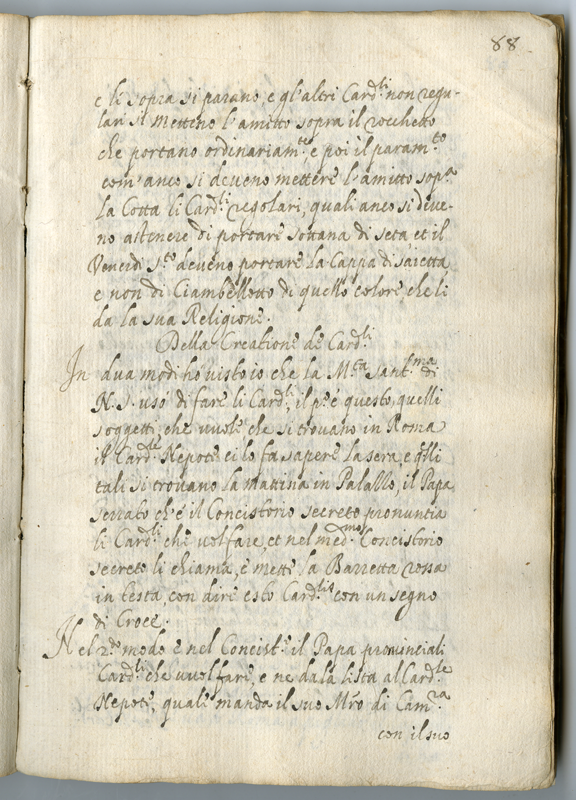 88
e li sopra si parano, e gl'altri Card.li non regu-
lari si metteno l'amitto sopra il rocchetto
che portano ordinariam.te e poi il param.to
com'anco si deveno mettere l'amitto sop.a
la Cotta li Card.li regolari, quali anco si deve-
no astenere di portare sottana di seta et il
Venerdi S.to deveno portare la Cappa di saietta
e non di Ciambellotto di quello colore che li
da la sua Religione.
Della Creatione de Card.li
In dua modi ho visto io che la M.ta Sant.ma di
N. S. uso di fare li Card.li, il p.o é questo, quelli
soggetti che vuole che si trovano in Roma
il Card.le Nepote ci lo fa sapere la sera, e q̃lli
tali si trovano la mattina in Palazzo, il Papa
serrato ch'é il Concistorio secreto pronuntia
li Card.li che vol fare, et nel med.mo Concistorio
secreto li chiama, e mette la Barretta rossa
in testa, con dire esto Card.lis con un segno
di Croce.
Nel 2.o modo e nel Concist.o il Papa pronuntia li
Card.li che vuol fare, e ne da la lista al Card.le
Nepote, quale manda il suo Mr̃o di Cam.ra
con il suo